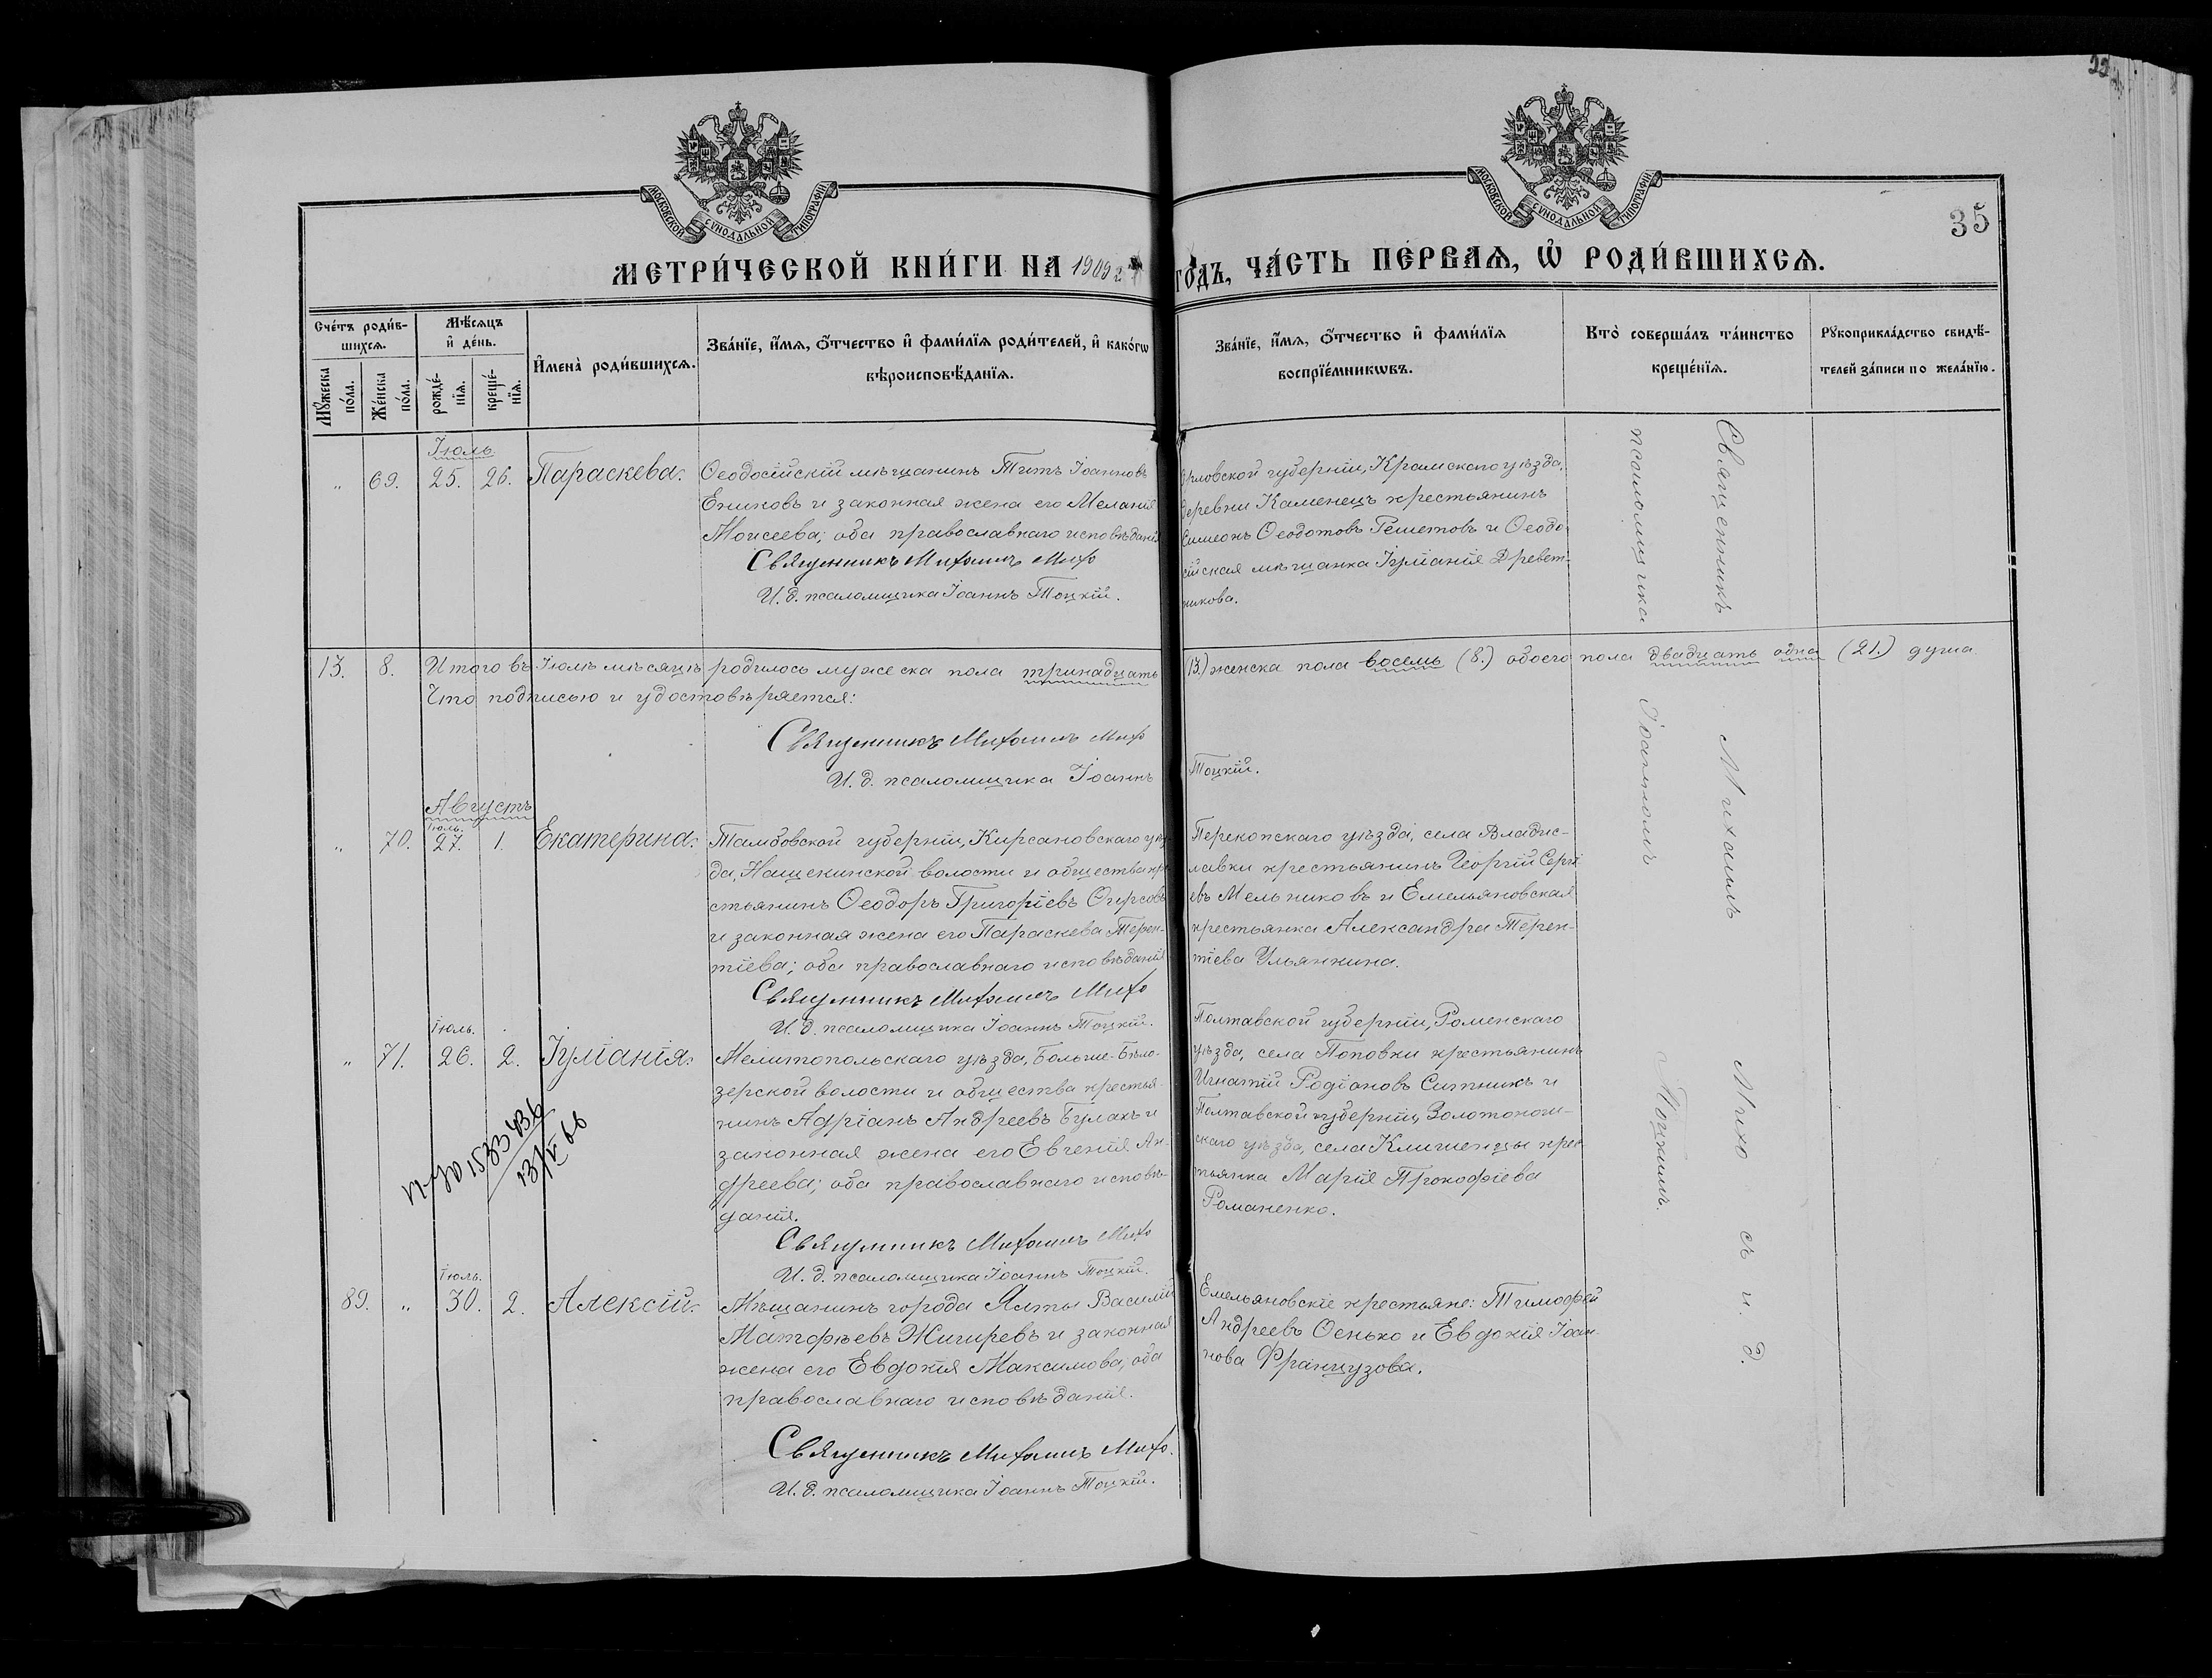 22
35
МОСКОВСКОЙ СѴНОДАЛЬНОЙ ТИПОГРАФІИ
МОСКОВСКОЙ СѴНОДАЛЬНОЙ ТИПОГРАФІИ
МЕТРИ́ЧЕСКОЙ КНИ́ГИ НА 1909 ГО́ДЪ, ЧА́СТЬ ПЕ́РВАЯ, Ѿ РОДИ́ВШИХСЯ.
Сче́тъ роди́в-
шихся.
Мꙋ́жеска
по́ла.
Же́нска
по́ла.
Мѣ́сяцъ
и҆ де́нь.
рожде́-
нїя.
креще́-
нїя.
И҆мена̀ роди́вшихся.
Зва́нїе, и҆́мя, ѻ҆́тчество и҆ фами́лїя роди́телей, и҆ како́гѡ
вѣроисповѣ́данїя.
Зва́нїе, и҆́мя, ѻ҆́тчество и҆ фами́лїя
воспрїе́мникѡвъ.
Кто̀ соверша́лъ та́инство
креще́нїя.
Рꙋкоприкла́дство свидѣ́-
телей за́писи по жела́нїю.
Іюль
" 69. 25. 26. Параскева.
Ѳеодосійскій мѣщанинъ Титъ Іоанновъ
Ениковъ и законная жена его Меланія
Моисеева; оба православнаго исповѣданія
Священникъ Михаилъ Михо
И. д. псаломщика Іоаннъ Тоцкій.
Орловской губерніи, Крамскаго уѣзда,
деревни Каменецъ крестьянинъ
Симеонъ Ѳеодотовъ Решетовъ и Ѳеодо-
сійская мѣщанка Іуліанія Древет-
никова.
13. 8. Итого въ Іюлѣ мѣсяцѣ родилось мужеска пола тринадцать (13.) женска пола восемь (8.) обоего пола двадцать одна (21.) душа.
Что подписью и удостовѣряется:
Священникъ Михаилъ Михо
И. д. псаломщика Іоаннъ Тоцкій.
Августъ
Іюль.
" 70. 27. 1. Екатерина.
Тамбовской губерніи, Кирсановскаго уѣз-
да, Нащекинской волости и общества кре-
стьянинъ Ѳеодоръ Григоріевъ Ѳирсовъ
и законная жена его Параскева Терен-
тіева; оба православнаго исповѣданія
Священникъ Михаилъ Михо
И. д. псаломщика Іоаннъ Тоцкій.
Перекопскаго уѣзда, села Владис-
лавки крестьянинъ Георгій Сергі-
евъ Мельниковъ и Емельяновская
крестьянка Александра Терен-
тіева Ульянкина.
Іюль.
" 71. 26. 2. Іуліанія.
Мелитопольскаго уѣзда, Больше-Бѣло-
зерской волости и общества крестья-
нинъ Адріанъ Андреевъ Булахъ и
законная жена его Евгенія Ан-
дреева; оба православнаго исповѣ-
данія.
Священникъ Михаилъ Михо
И. д. псаломщика Іоаннъ Тоцкій.
Полтавской губерніи, Роменскаго
уѣзда, села Поповки крестьянинъ
Игнатій Родіоновъ Ситникъ и
Полтавской губерніи, Золотоноши-
скаго уѣзда, села Клишенцы крес-
тьянка Марія Прокофіева
Романенко.
1533436
13/V 66
Іюль.
89. " 30. 2. Алексій.
Мѣщанинъ города Ялты Василій
Матфѣевъ Жигиревъ и законная
жена его Евдокія Максимова, оба
православнаго исповѣданія.
Священникъ Михаилъ Михо.
И. д. псаломщика Іоаннъ Тоцкій.
Емельяновскіе крестьяне: Тимофей
Андреевъ Осенько и Евдокія Іоан-
нова Французова.
Священникъ Михаилъ Михо съ и. д.
псаломщика Іоанномъ Тоцкимъ.